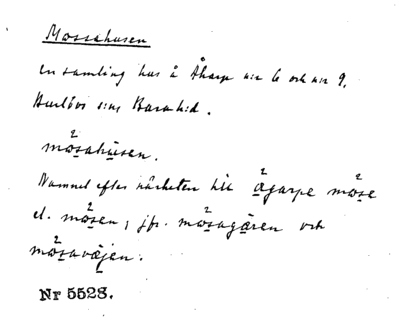 Mossahusen
en samling hus å Åkarp n:r 6 och n:r 9,
Burlövs sns Bara hd.
mosahusen.
Namnet efter närheten till ågarpe mose
el. mosen; jfr. mosagären och
mosaväjen.
Nr 5528.